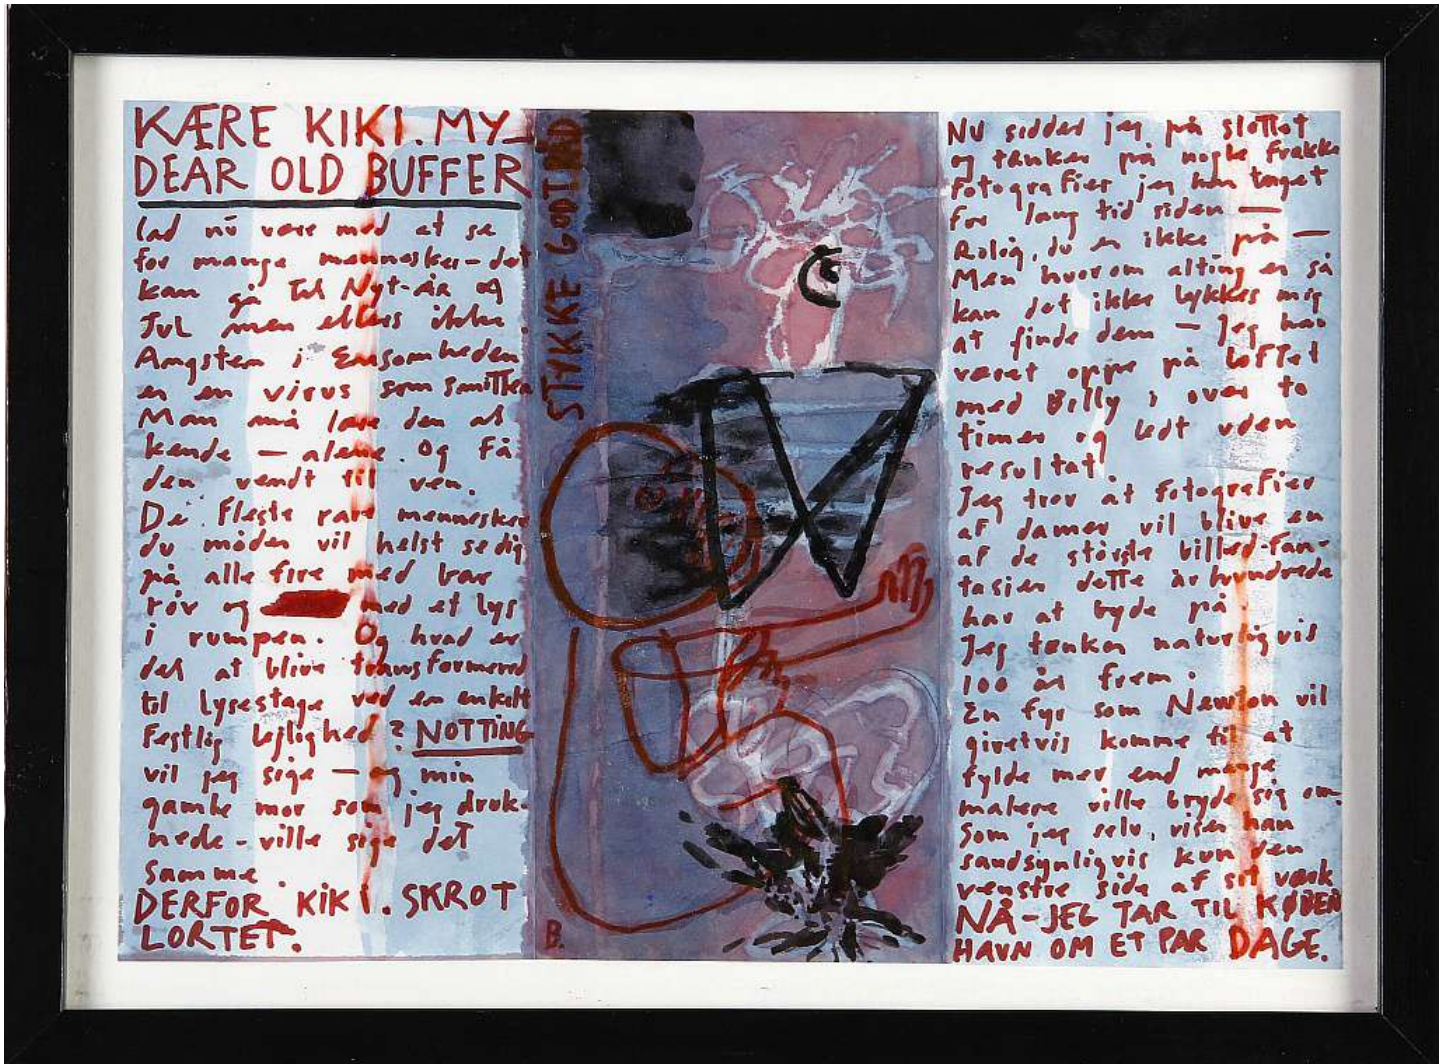 KÆRE KIKI. MY
DEAR OLD BUFFER
lad nú være med at se
for mange mennesker - det
kan gå til Nyt-år og
Jul men ellers ikke.
Angsten i Ensomheden
er en virus som smitter
Man må lære den at
kende — alene. Og få
den vendt til ven.
De fleste rare mennesker
du møder vil helst se dig
på alle fire med bar
røv og med et lys
i rumpen. Og hvad er
det at blive transformeret
til lysestage ved en enkelt
festlig lejlighed? NOTTING
vil jeg sige — og min
gamle mor som jeg druk-
nede - ville sige det
samme.
DERFOR. KIKI. SKROT
LORTET.
STYKKE GODT RÅD
B.
Nu sidder jeg på slottet
og tænker på nogle frække
fotografier jeg har taget
for lang tid siden —
Rolig, du er ikke på —
Men hvorom alting er så
kan det ikke lykkes mig
at finde dem — Jeg har
været oppe på loftet
med Billy i over to
timer og ledt uden
resultat.
Jeg tror at fotografier
af damer vil blive en
af de største billed-fan-
tasier dette århundrede
har at byde på.
Jeg tænker naturligvis
100 år frem.
En fyr som Newton vil
givetvis komme til at
fylde mer end mange
malere ville bryde sig om.
Som jeg selv, viser han
sandsynligvis kun den
venstre side af sit værk
NÅ - JEG TAR TIL KØBEN
HAVN OM ET PAR DAGE.